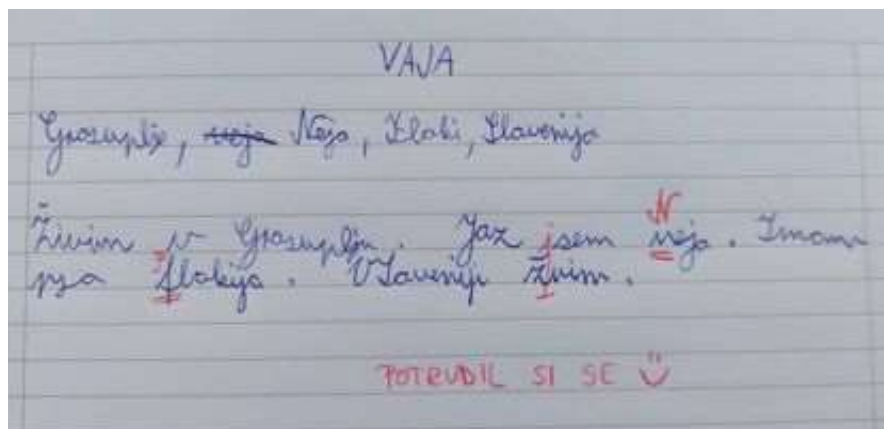 VAJA
Grosuplje, Neja, Flaki, Slovenija
N
Živim v Grosuplju. Jaz jsem neja. Imam
psa flakija. V Sloveniji živim.
POTRUDIL SI SE